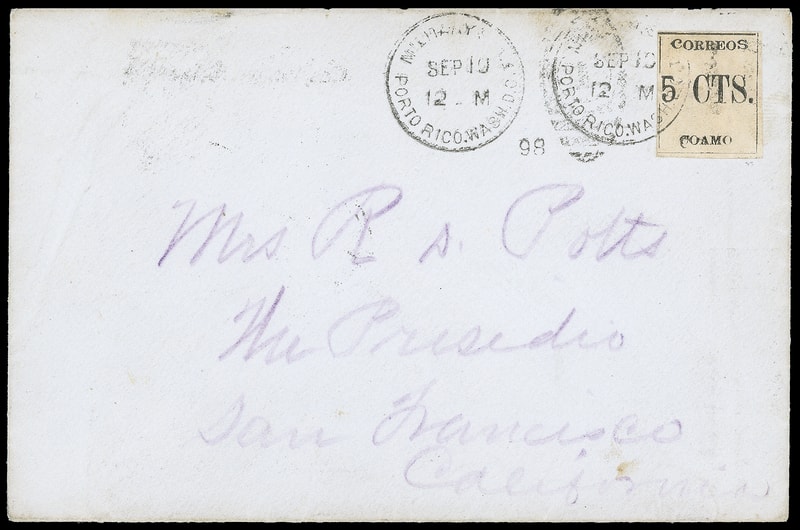 MILITARY
SEP 10
12 M
PORTO RICO. WASH. D.C.
98
SEP 10
12 M
PORTO RICO. WASH
CORREOS
5 CTS.
COAMO
Mrs R D. Potts
The Presidio
San Francisco
California